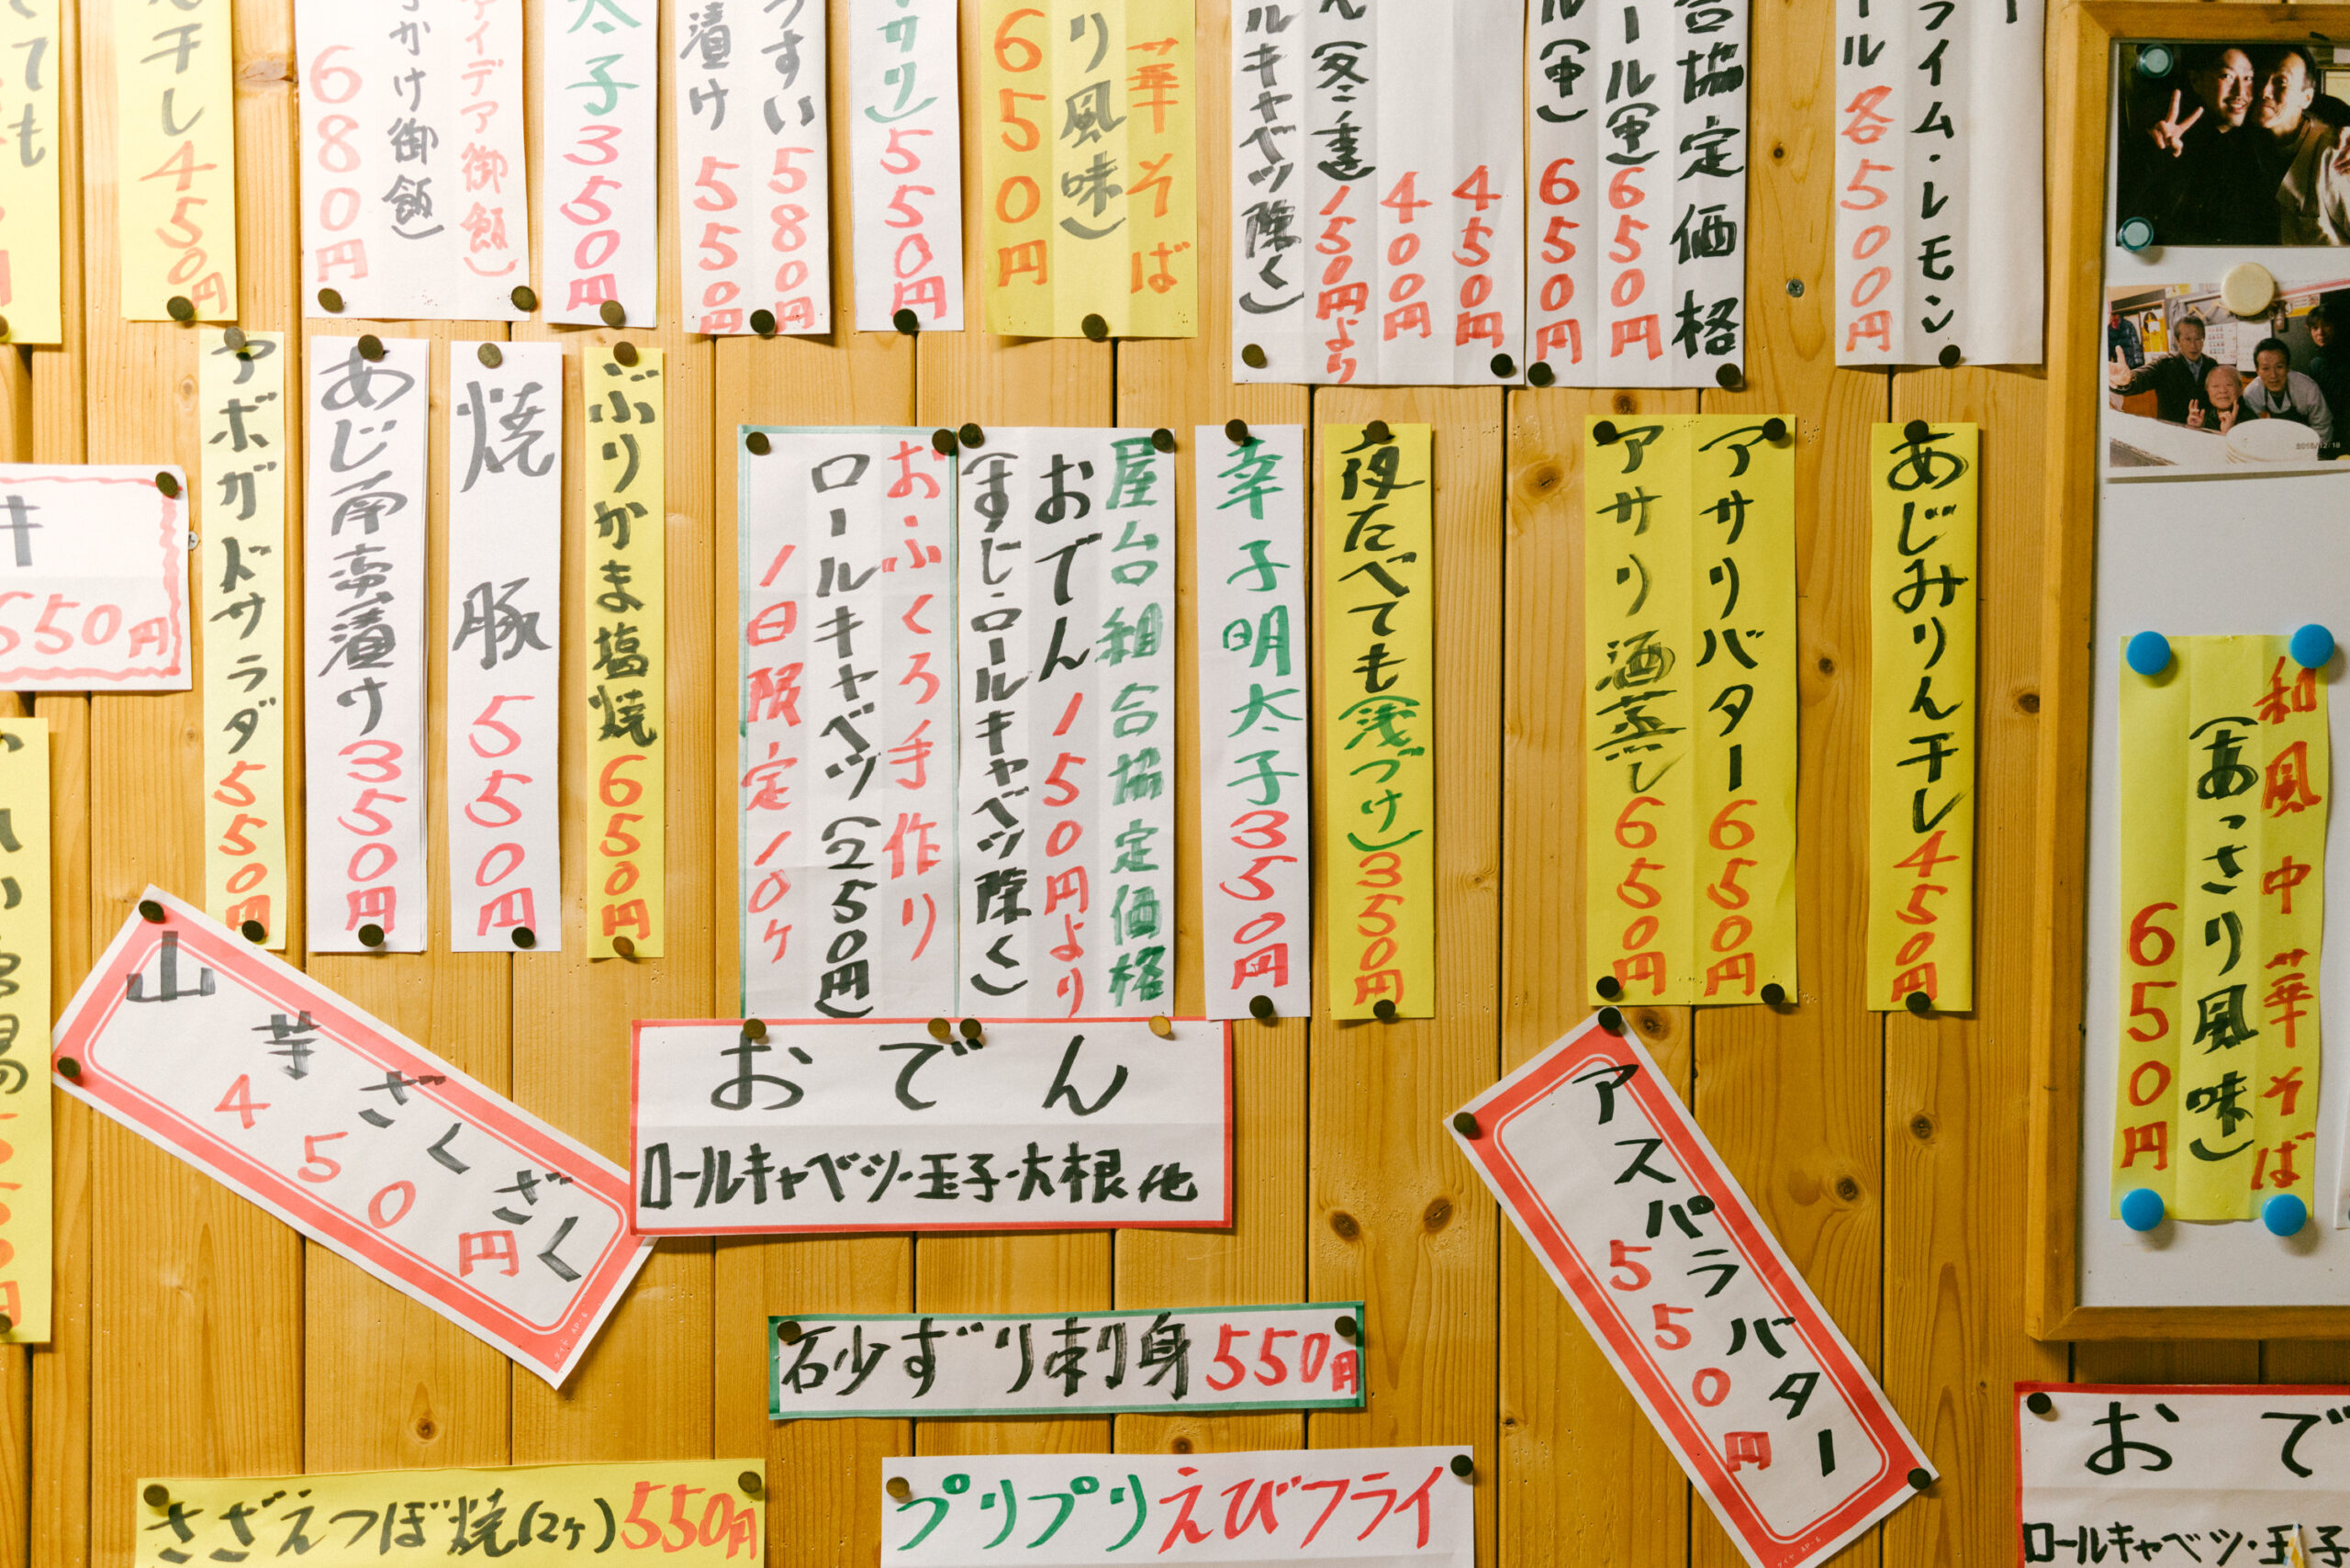 ライム・レモン
ール 各500円
合協定価格
ール(中)650円
ル(中) 650円
450円
400円
ん(冬季)150円より
ルキャベツ除く)
華そば
り風味)
650円
サリ)550円
うすい580円
漬け 550円
太子350円
アイデア御飯)
かけ御飯)
680円
干し450円
ても
あじみりん干し450円
アサリバター650円
アサリ酒蒸し650円
夜たべても(浅づけ)350円
幸子明太子350円
屋台組合協定価格
おでん150円より
(すじ・ロールキャベツ除く)
おふくろ手作り
ロールキャベツ(250円)
1日限定10ヶ
ぶりかま塩焼650円
焼豚550円
あじ南蛮漬け350円
アボガドサラダ550円
キ
650円
和風中華そば
(あっさり風味)
650円
山芋ざくざく
450円
おでん
ロールキャベツ・玉子・大根他
アスパラバター
550円
砂ずり刺身550円
さざえつぼ焼(2ヶ)550円
プリプリえびフライ
おで
ロールキャベツ・玉子